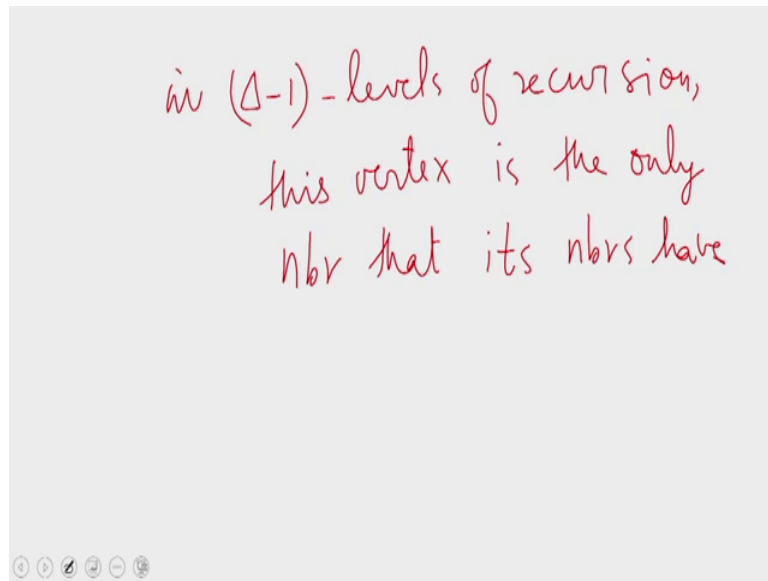 in (Δ-1)-levels of recursion,
this vertex is the only
nbr that its nbrs have